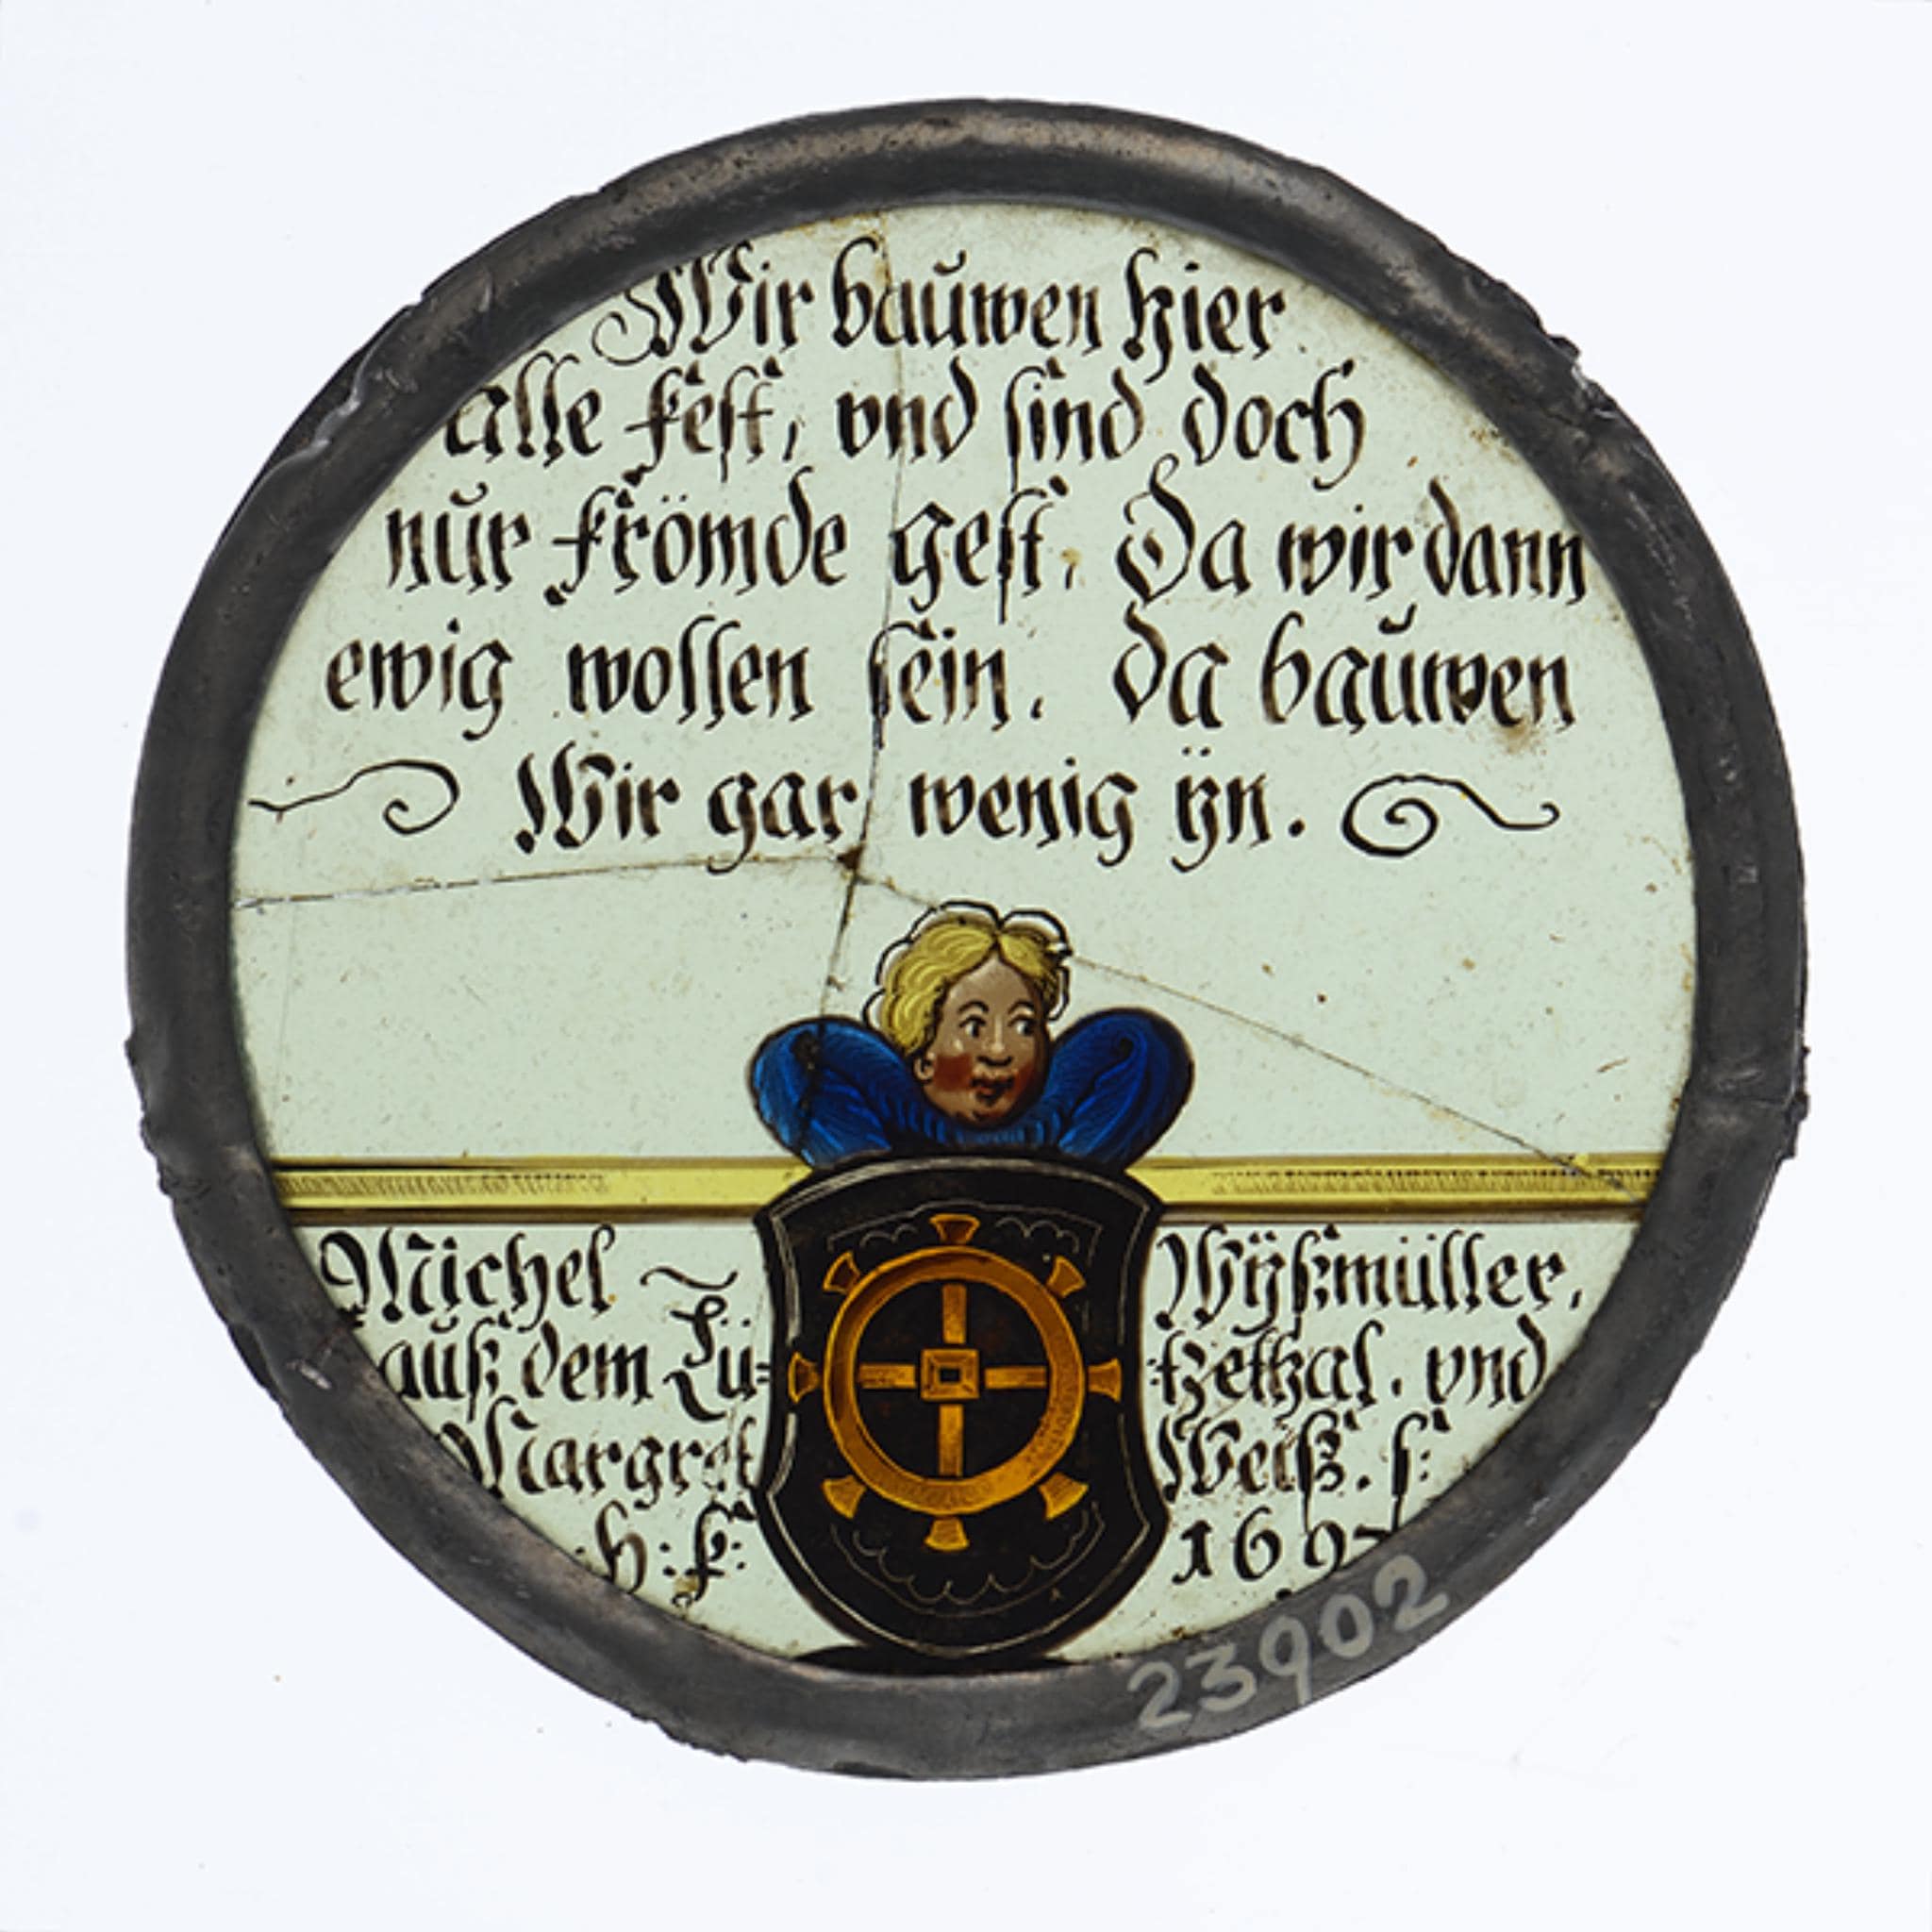 Wir bauwen hier
alle fest, vnd sind doch
nur frömde gest, Da wir dann
ewig wollen sein. Da bauwen
Wir gar wenig ÿn.
Michel Wÿßmüller,
auß dem Lü= tzelthal. vnd
Margret Weiß. s:
H: f: 169
23902